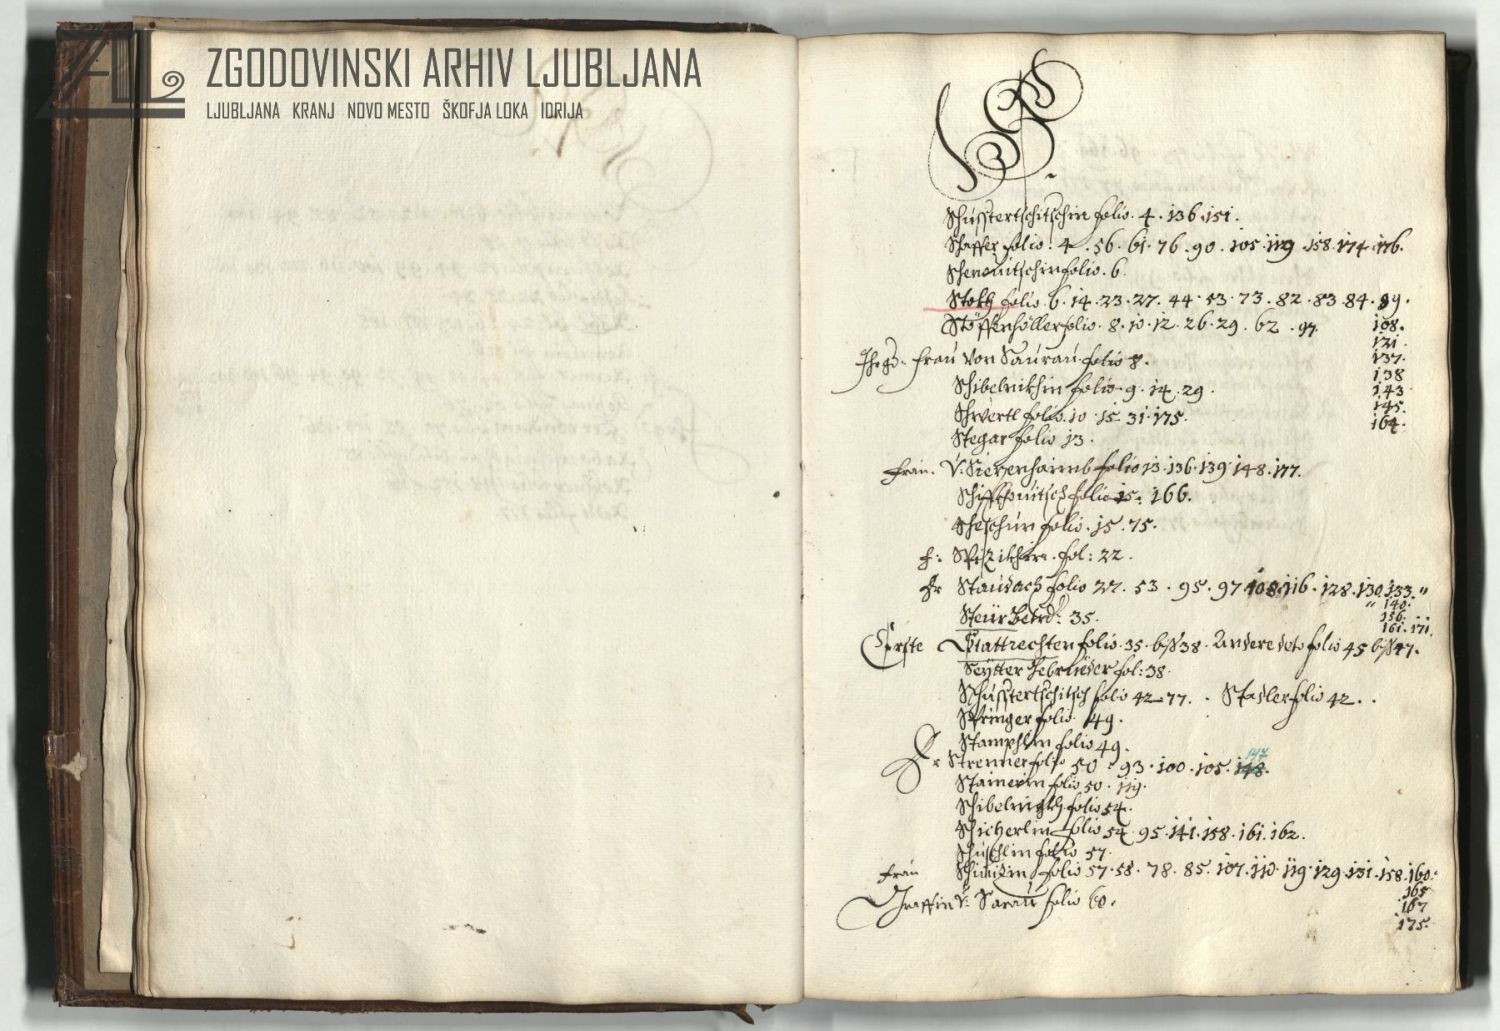 ZGODOVINSKI ARHIV LJUBLJANA
LJUBLJANA KRANJ NOVO MESTO ŠKOFJA LOKA IDRIJA
S
Schusstertschitschin folio. 4. 136. 151.
Schaffer folio. 4. 56. 61. 76. 90. 105. 119. 158. 174. 176.
folio. 6.
Stokh folio 6. 14. 23. 27. 44. 53. 73. 82. 83. 84. 89.
108.
121.
137.
138
143
145.
164.
Stöffenhöller folio. 8. 10. 12. 26. 29. 62. 97
frau von Saurau folio 8.
Schibelnikhin folio. 9. 14. 29.
Schwertl folio. 10. 15. 31. 175.
Stegar folio 13.
frau. V: folio 13. 136. 139. 148. 177.
folio 15. 166.
Scheschun folio. 15. 75.
f: fol: 22.
fr Staudach folio 27. 53. 95. 97. 108. 116. 128. 130. 133. "
" 140.
156.
161. 171.
35.
Erste Stattrechten folio. 35. biß 38. Andere deto folio 45 biß 47.
Seytter Gebrüeder fol: 38.
Schusstertschitsch folio 42. 77. . Stadler folio 42. .
Springer folio 49.
Stamphlin folio 49.
Hr Strenner folio 50. 93. 100. 105. 148.
147
Stainerin folio 50. 119.
folio 54.
Spicherlin folio 54. 95. 141. 158. 161. 162.
Schuschlin folio 57.
frau folio 57. 58. 78. 85. 107. 110. 119. 129. 131. 158. 160.
165
167
175.
Graffin v: Sarau folio 60.